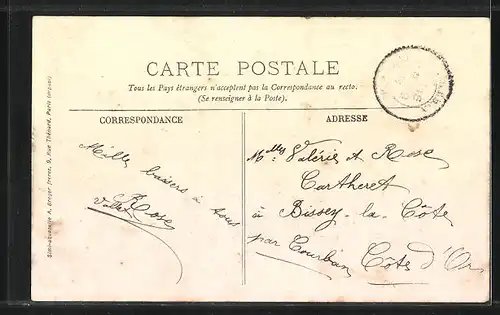 CARTE POSTALE
Tous les Pays étrangers n'acceptent pas la Correspondance au recto.
(Se renseigner à la Poste).
CORRESPONDANCE
Mille baisers à tous
Rose
ADRESSE
Mlles Valérie et Rose
Cartheret
à Bissey-la-Côte
par Courban Côte d'Or
A. Breger frères, 9, Rue Thénard, Paris